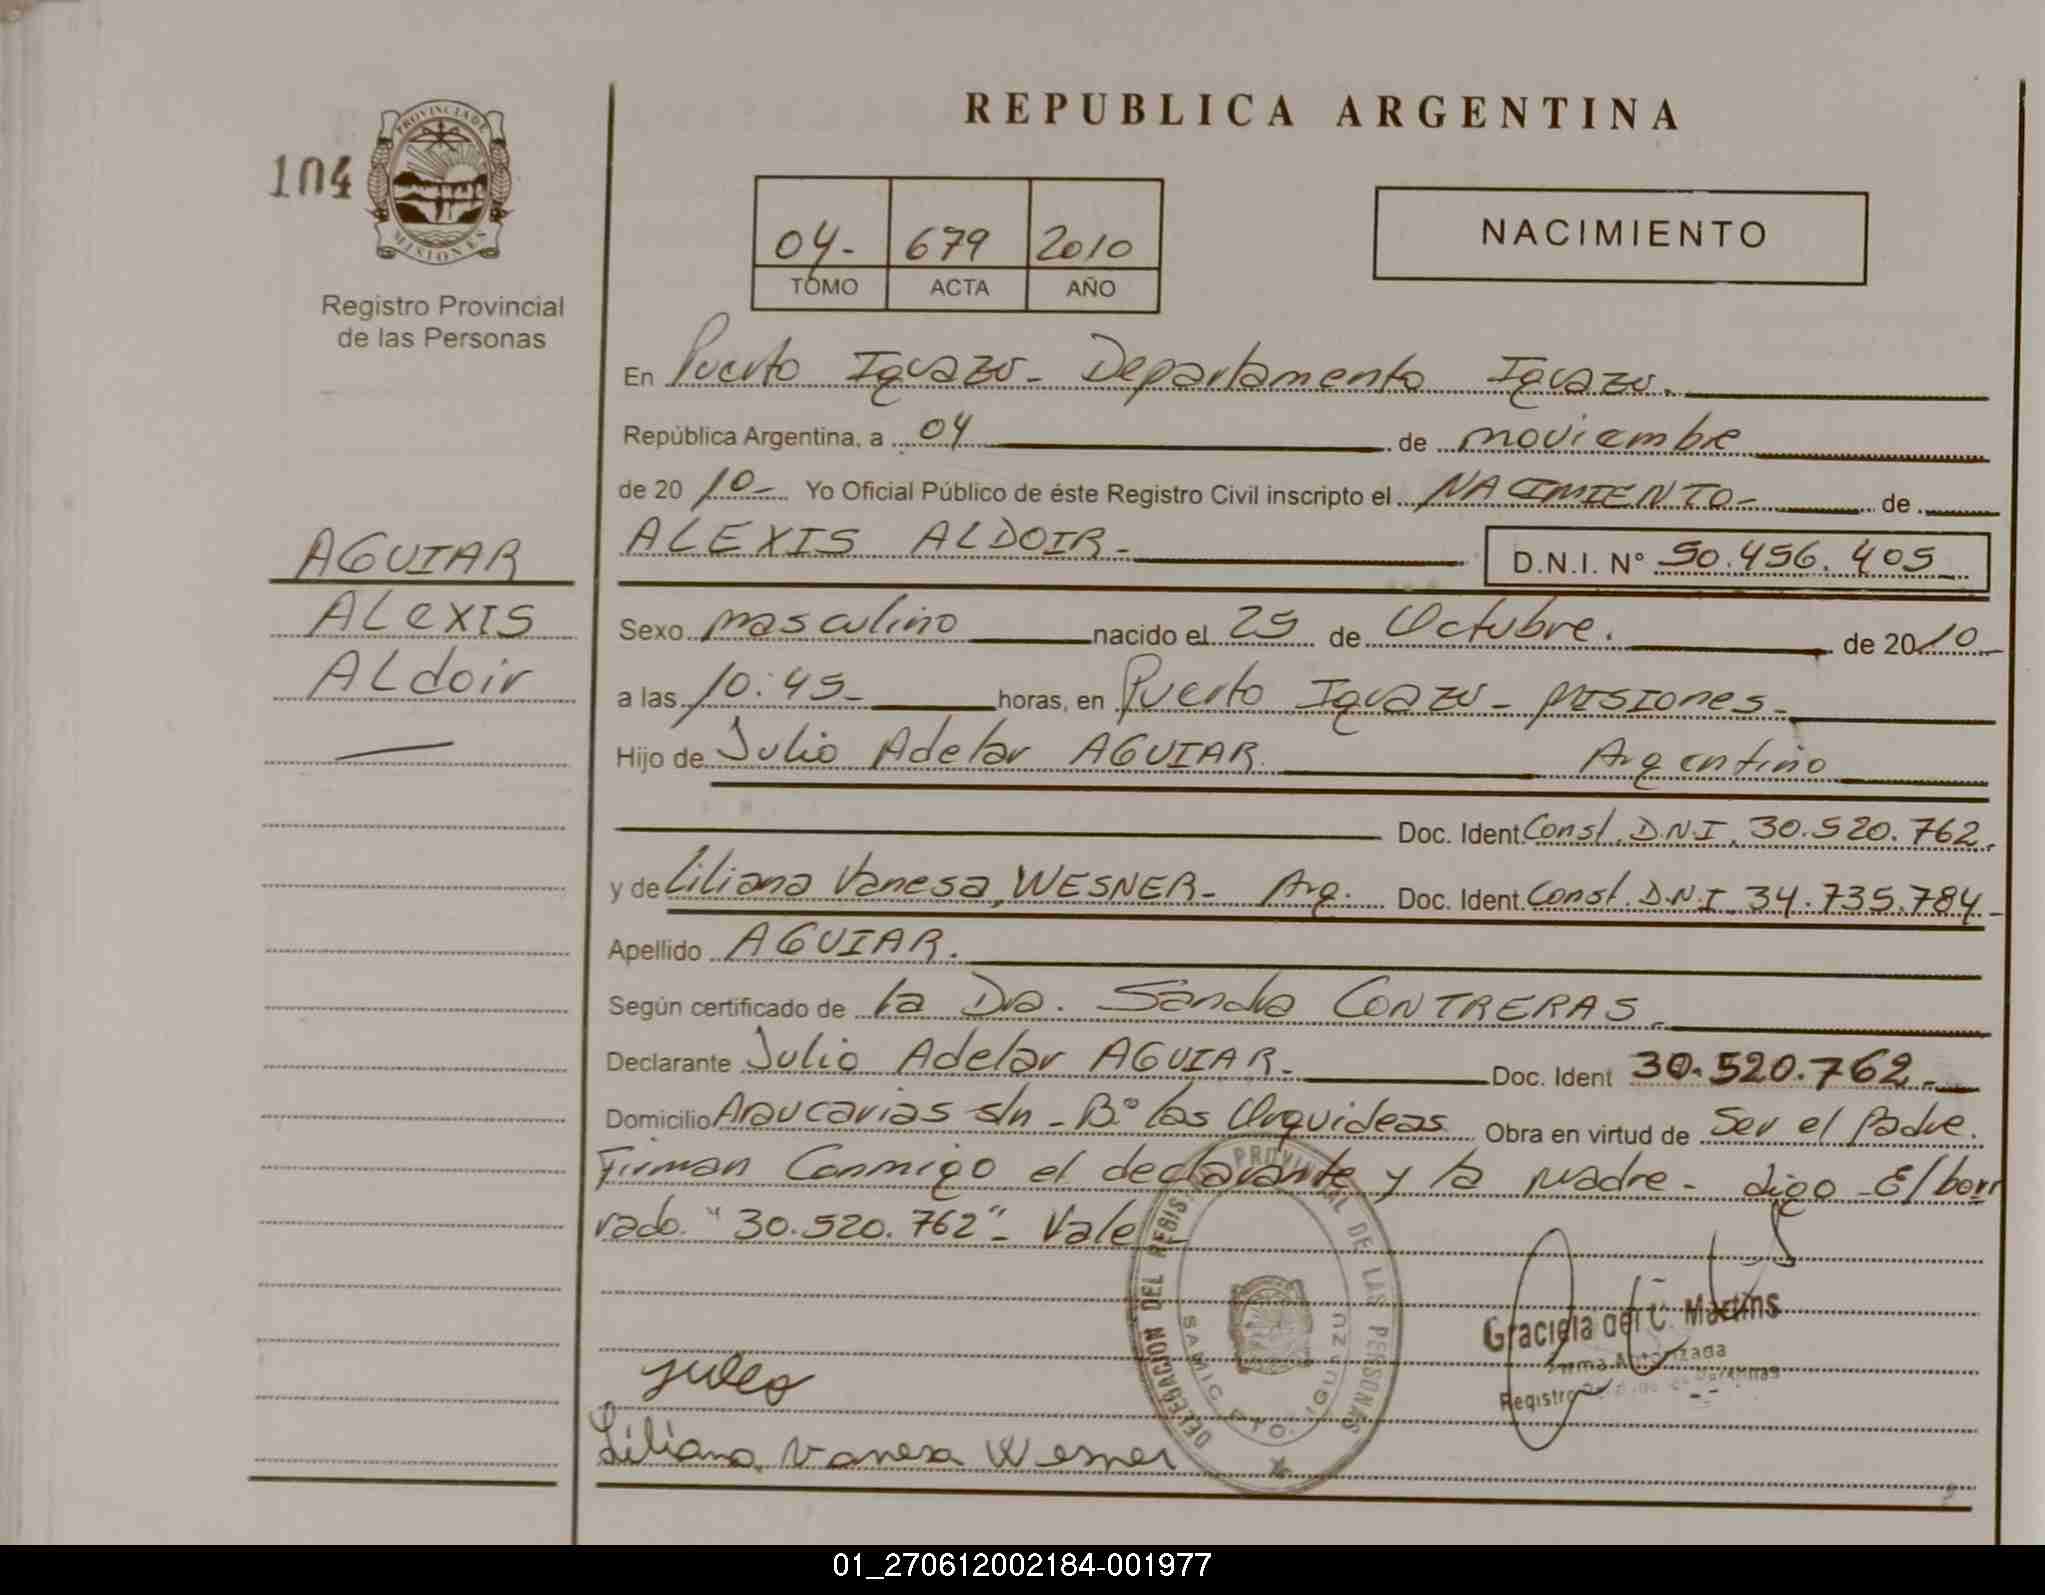 REPUBLICA ARGENTINA
104
PROVINCIA DE
MISIONES
Registro Provincial
de las Personas
04- 679 2010
TOMO ACTA AÑO
NACIMIENTO
En Puerto Iguazu - Departamento Iguazu.
República Argentina, a 04 de noviembre
de 20 10- Yo Oficial Público de éste Registro Civil inscripto el NACIMIENTO- de
ALEXIS ALDOIR- D.N.I. N° 50.456.405
AGUIAR
ALEXIS
ALdoir
Sexo masculino nacido el 25 de Octubre. de 2010
a las 10:45- horas, en Puerto Iguazu - MISIONES-
Hijo de Julio Adelar AGUIAR Argentino
Doc. Ident. Const. D.N.I. 30.520.762.
y de Liliana Vanesa, WESNER- Arg. Doc. Ident. Const. D.N.I 34.735.784-
Apellido AGUIAR.
Según certificado de la Dra. Sandra CONTRERAS.
Declarante Julio Adelar AGUIAR- Doc. Ident 30.520.762-
Domicilio Araucarias s/n - B° Las Orquideas Obra en virtud de Ser el Padre.
Firman Conmigo el declarante y la madre - digo - El bor
rado "30.520.762" - Vale
DELEGACION DEL REGIS. PROVINCIAL DE LAS PERSONAS
SAMIC PTO. IGUAZU
Graciela del C. Martins
Firma Autorizada
Registro
Julio
Liliana Vanesa Wesner
01_270612002184-001977